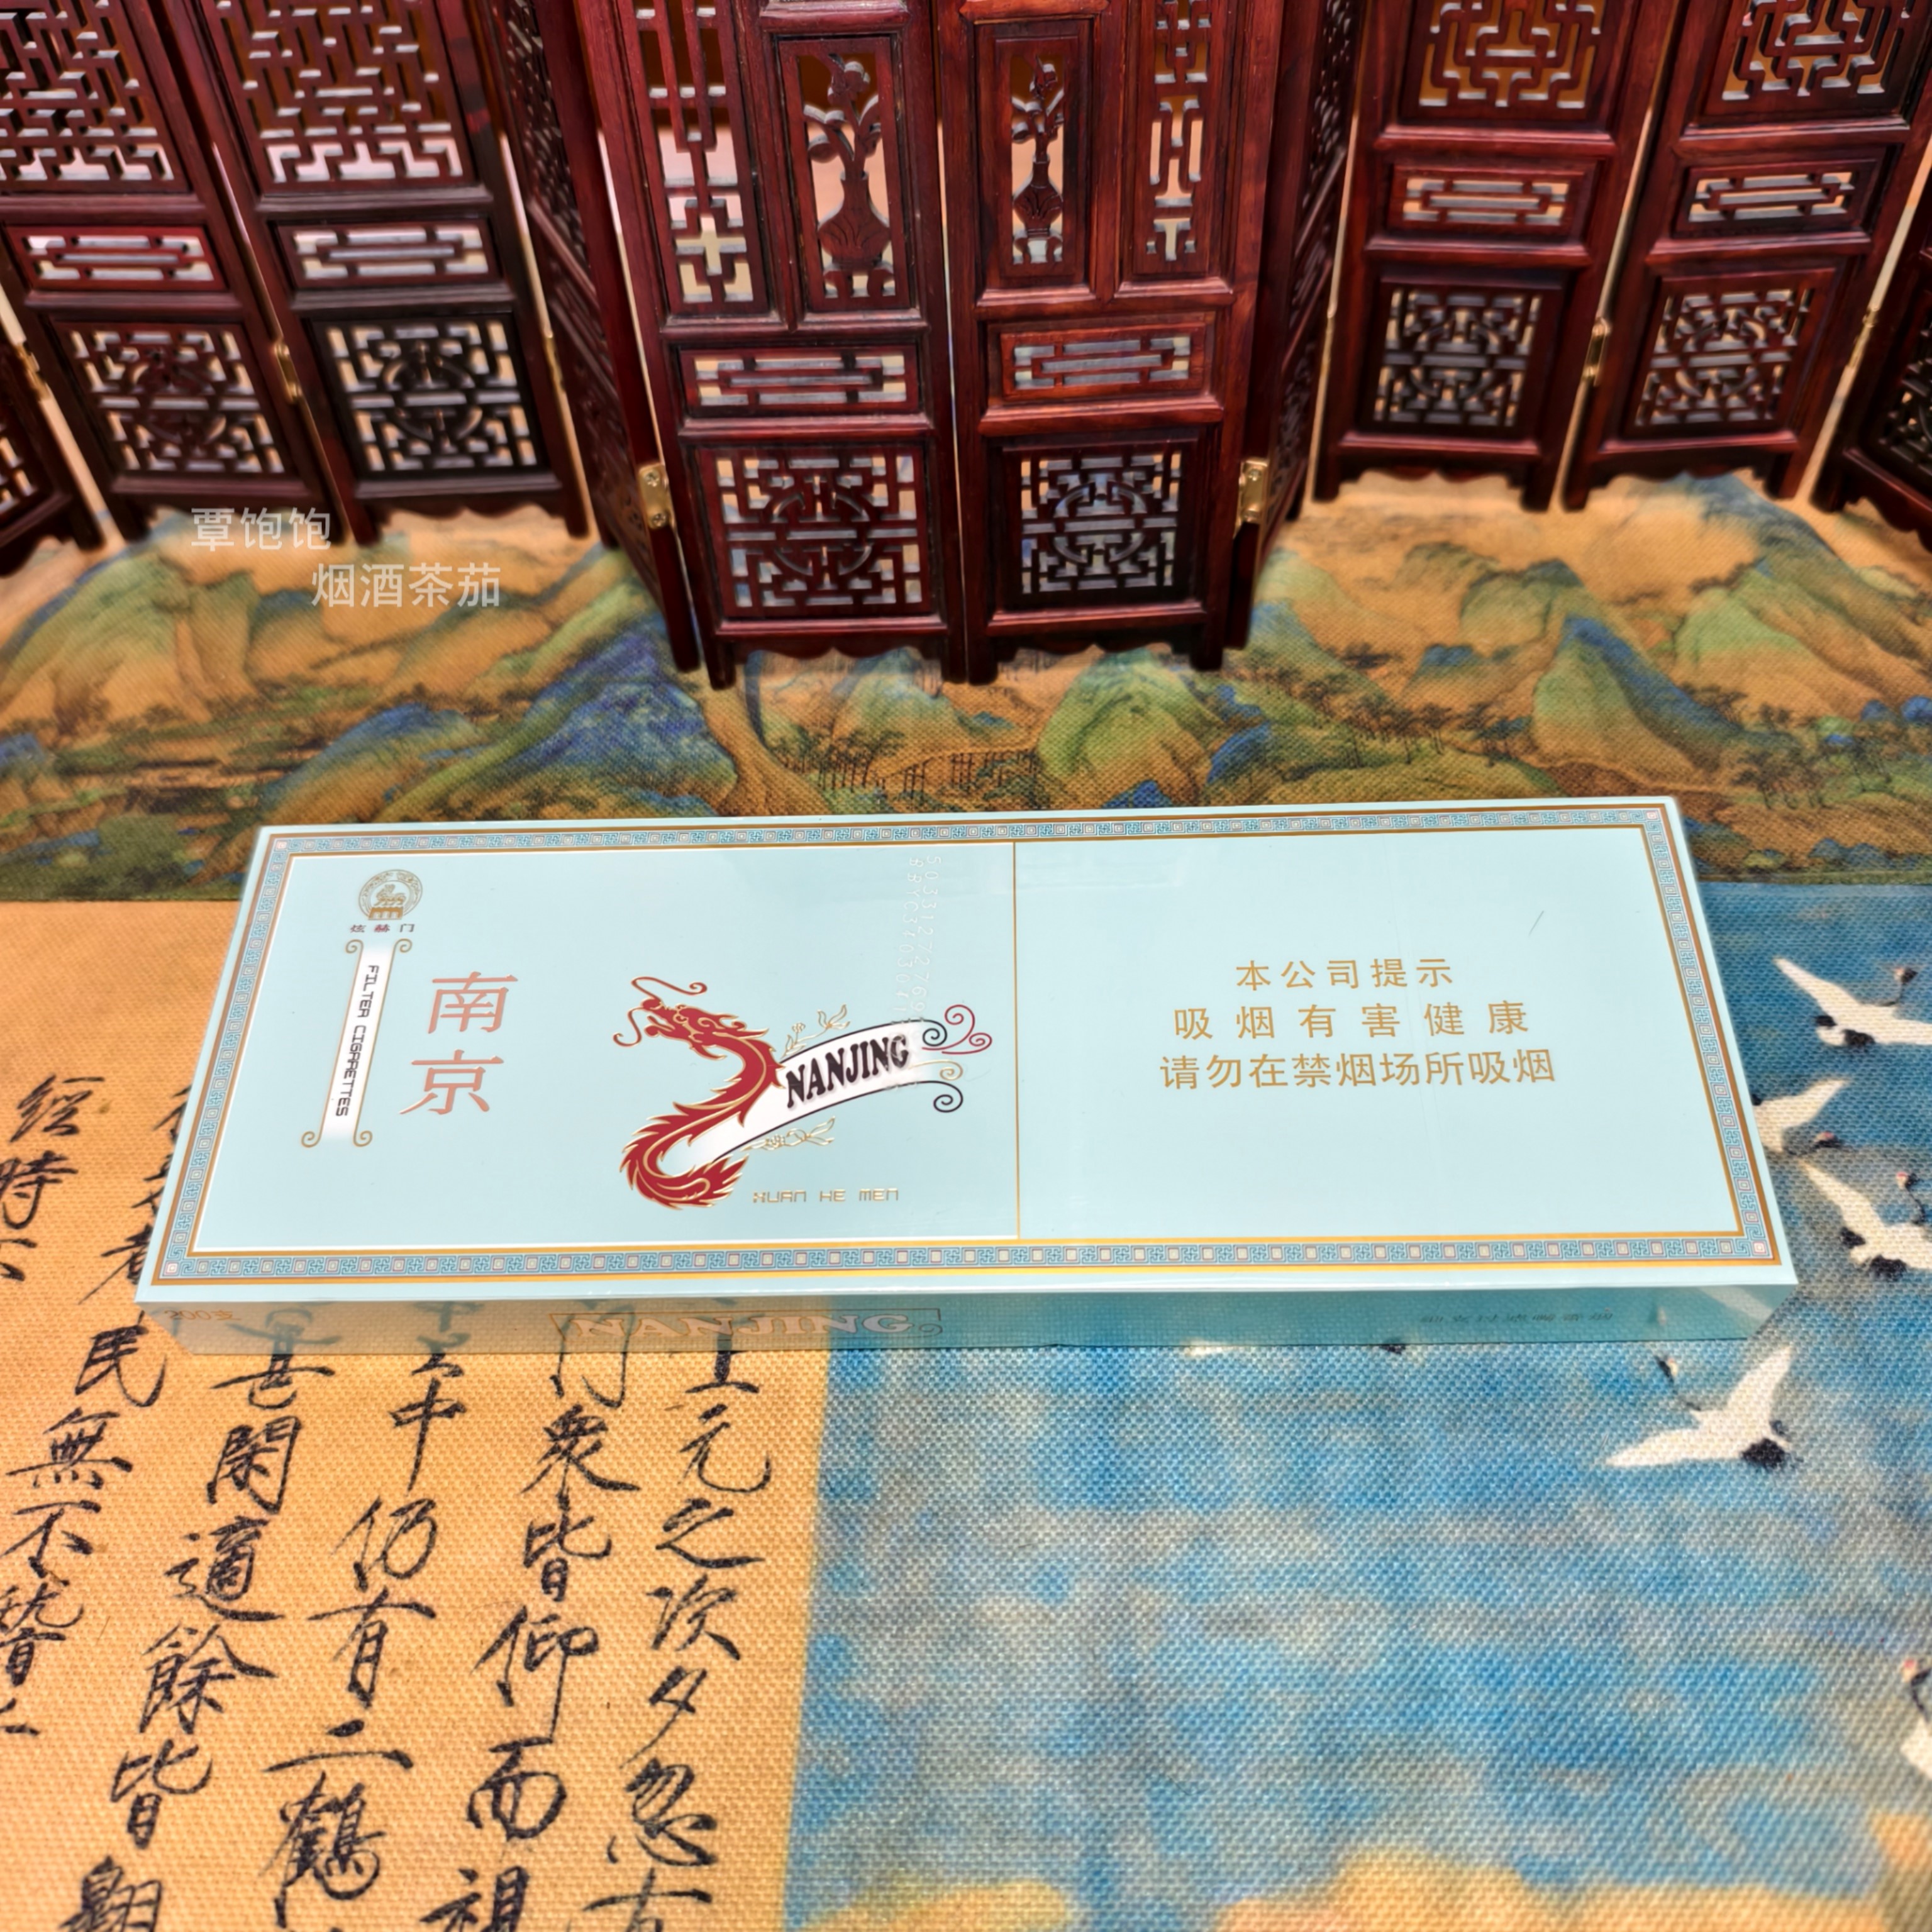 覃饱饱
烟酒茶茄
炫赫门
FILTER CIGARETTES
南京
NANJING
XUAN HE MEN
本公司提示
吸烟有害健康
请勿在禁烟场所吸烟
200支
NANJING
元之次夕忽有
门众皆仰而祖
中仍有二鶴
甚閑適餘皆翺
民無不
經時不